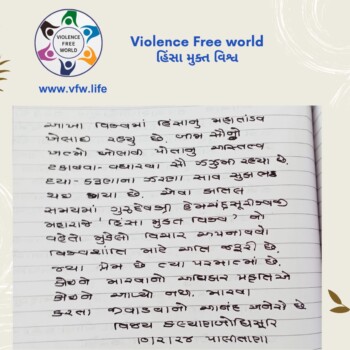 VIOLENCE
FREE
WORLD
Violence Free world
હિંસા મુક્ત વિશ્વ
www.vfw.life
આખા વિશ્વમાં હિંસાનું મહાતાંડવ
ખેલાઇ રહ્યુ છે. બીજા સૌનો
ખાત્મો બોલાવી પોતાનું અસ્તિત્વ
ટકાવવા-વધારવા સૌ ઝઝુમી રહયા છે.
દયા-કરૂણાના ઝરણા સાવ સુકા ભઠ
થઇ ગયા છે. એવા કાતિલ
સમયમાં ગુરુદેવશ્રી હેમચંદ્રસૂરીશ્વરજી
મહારાજે 'હિંસા મુક્ત વિશ્વ' નો
વહેતો મુકેલો વિચાર અપનાવવો
વિશ્વશાંતિ માટે અતિ જરૂરી છે.
જ્યા પ્રેમ છે ત્યા પરમાત્મા છે.
કોઇને મારવાનો અધિકાર પ્રકૃતિએ
કોઇને આપ્યો નથી, મારવા
કરતા જીવાડવાનો આનંદ અનેરો છે
વિજય કલ્યાણબોધિસૂરિ
પાલીતાણા